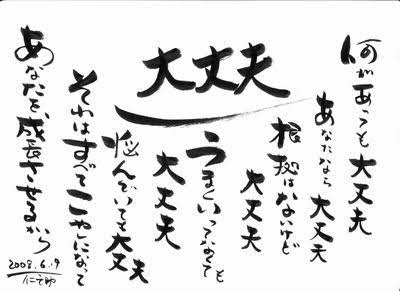 大丈夫
何があっても大丈夫
あなたなら大丈夫
根拠はないけど大丈夫
うまくいってなくても大丈夫
悩んでいても大丈夫
それはすべてこやしになって
あなたを、成長させるから
2008.6.9
仁之助